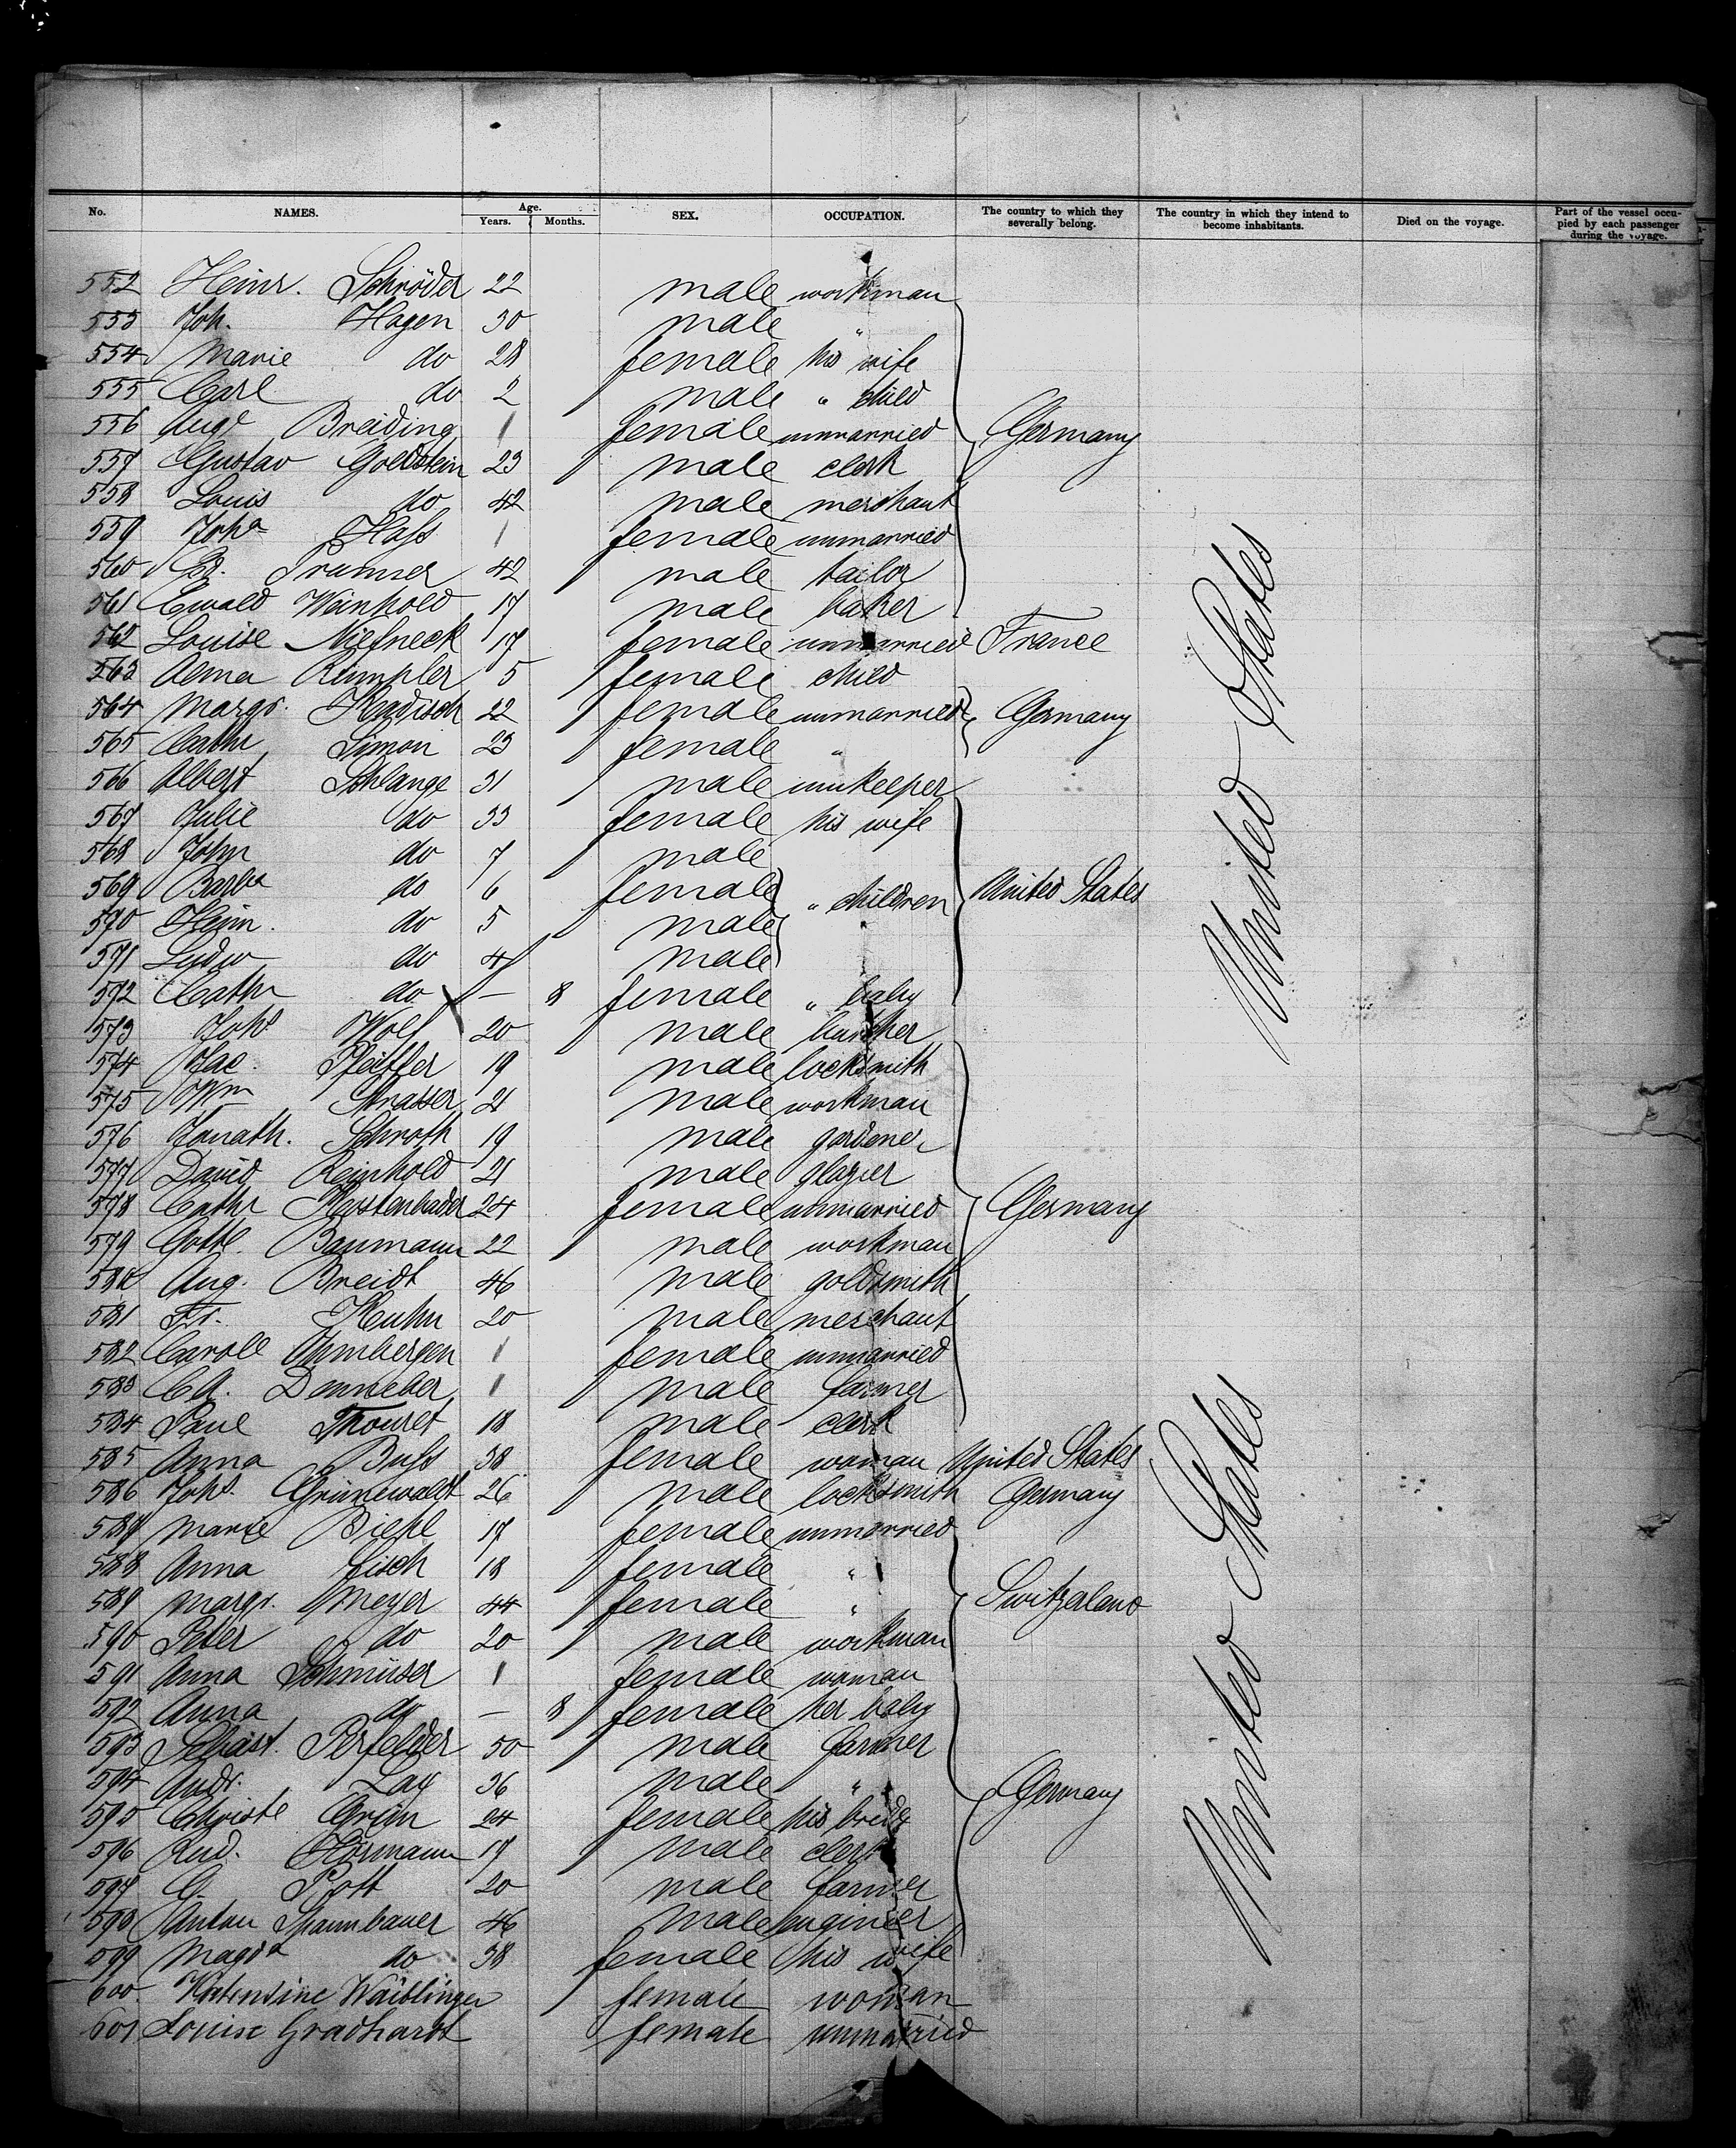 No. NAMES. Age. Years. Months. SEX. OCCUPATION. The country to which they severally belong. The country in which they intend to become inhabitants. Died on the voyage. Part of the vessel occupied by each passenger during the voyage.
552 Heinr. Schröder 22 male workman
553 Joh. Hagen 30 male "
554 Marie do 28 female his wife
555 Carl do 2 male " child
556 Augᵉ Breiding 1 female unmarried Germany
557 Gustav Goldstein 23 male clerk
558 Louis do 42 male merchant
559 Johᵃ Hass 1 female unmarried
560 male tailor 42
561 Ewald Weinhold 17 male baker
562 Louise 17 female unmarried France
563 Alma Rumpler 5 female child
564 Margr. 22 female unmarried Germany
565 Cathr Simon 23 female "
566 Albert Schlange 31 male innkeeper
567 Julie do 33 female his wife
568 John do 7 male
569 Barbᵃ do 6 female " children United States
570 Heinr. do 5 male
571 Ludw do 4 male
572 Cathr do — 8 female " baby
573 Johˢ Wolf 20 male butcher
574 Jac. Pfeiffer 19 male locksmith
575 Wm Strasser 21 male workman
576 Jonath. Schroth 19 male gardener
577 David Reinhold 21 male glazier
578 Cathr Kerstenbader 24 female unmarried Germany
579 Gottl. Baumann 22 male workman
580 Aug. Breidt 46 male goldsmith
581 Fr. Kuhn 20 male merchant
582 Caroll 1 female unmarried
583 1 male farmer
584 Paul Thouret 18 male clerk
585 Anna Buss 38 female woman United States
586 Johˢ Grünewaldt 26 male locksmith Germany
587 Marie Biehl 17 female unmarried
588 Anna Fisch 18 female "
589 Margr. Meyer 44 female " Switzerland
590 Peter do 20 male workman
591 Anna 1 female woman
592 Anna do — 8 female her baby
593 Sebast. 50 male farmer
594 Andr. Lay 36 male " Germany
595 Christᵉ Grün 24 female his bride
596 Rud. Hörmann 17 male clerk
597 G. Pott 20 male farmer
598 Anton Spannbauer 46 male engineer
599 Magdᵃ do 38 female his wife
600 Waiblinger female woman
601 Louise Gradhardt female unmarried
United States
United States